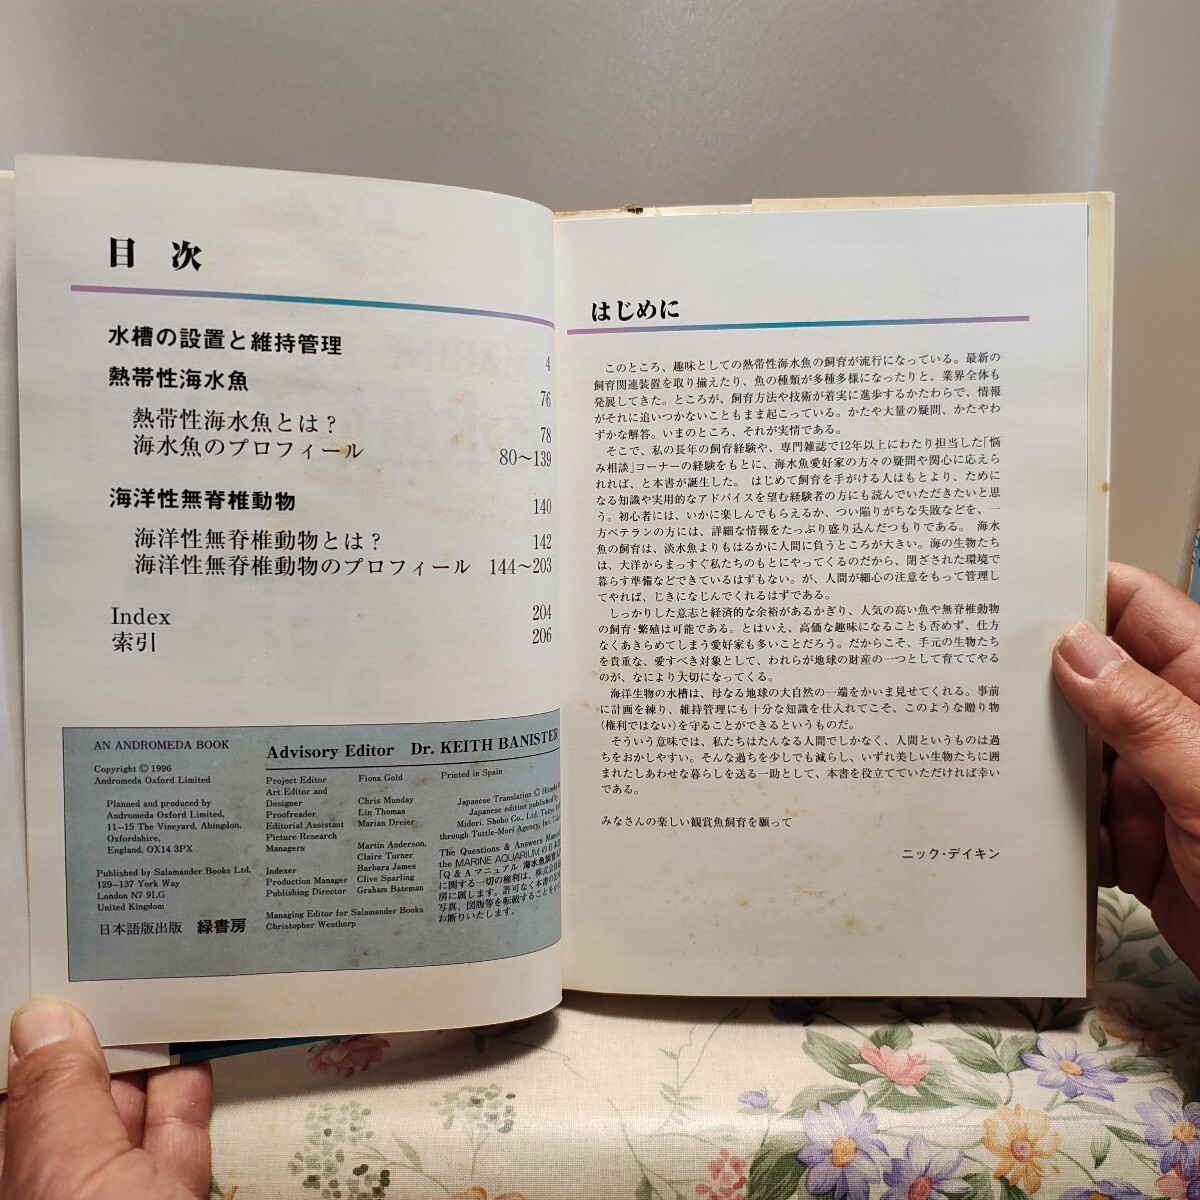 目 次
水槽の設置と維持管理 4
熱帯性海水魚 76
熱帯性海水魚とは? 78
海水魚のプロフィール 80〜139
海洋性無脊椎動物 140
海洋性無脊椎動物とは? 142
海洋性無脊椎動物のプロフィール 144〜203
Index 204
索引 206
AN ANDROMEDA BOOK
Copyright © 1996
Andromeda Oxford Limited
Planned and produced by
Andromeda Oxford Limited,
11–15 The Vineyard, Abingdon,
Oxfordshire,
England, OX14 3PX
Published by Salamander Books Ltd.
129–137 York Way
London N7 9LG
United Kingdom
日本語版出版 緑書房
Advisory Editor Dr. KEITH BANISTER
Project Editor Fiona Gold
Art Editor and
Designer Chris Munday
Proofreader Lin Thomas
Editorial Assistant Marian Dreier
Picture Research
Managers Martin Anderson,
Claire Turner
Indexer Barbara James
Production Manager Clive Sparling
Publishing Director Graham Bateman
Managing Editor for Salamander Books
Christopher Westhorp
Printed in Spain
Japanese Translation ©
Japanese edition published by
Midori. Shobo Co., Ltd. Tokyo
through Tuttle-Mori Agency, Inc. Tokyo
The Questions & Answers Manual
the MARINE AQUARIUMの日本
「Q & Aマニュアル 海水魚飼育
に関する一切の権利は、株式会社
房に属します。許可なく本書の
写真、図版等を転載することを
お断りいたします。
はじめに
このところ、趣味としての熱帯性海水魚の飼育が流行になっている。最新の
飼育関連装置を取り揃えたり、魚の種類が多種多様になったりと、業界全体も
発展してきた。ところが、飼育方法や技術が着実に進歩するかたわらで、情報
がそれに追いつかないこともまま起こっている。かたや大量の疑問、かたやわ
ずかな解答。いまのところ、それが実情である。
そこで、私の長年の飼育経験や、専門雑誌で12年以上にわたり担当した「悩
み相談」コーナーの経験をもとに、海水魚愛好家の方々の疑問や関心に応えら
れれば、と本書が誕生した。 はじめて飼育を手がける人はもとより、ために
なる知識や実用的なアドバイスを望む経験者の方にも読んでいただきたいと思
う。初心者には、いかに楽しんでもらえるか、つい陥りがちな失敗などを、一
方ベテランの方には、詳細な情報をたっぷり盛り込んだつもりである。 海水
魚の飼育は、淡水魚よりもはるかに人間に負うところが大きい。海の生物たち
は、大洋からまっすぐ私たちのもとにやってくるのだから、閉ざされた環境で
暮らす準備などできているはずもない。が、人間が細心の注意をもって管理し
てやれば、じきになじんでくれるはずである。
しっかりした意志と経済的な余裕があるかぎり、人気の高い魚や無脊椎動物
の飼育・繁殖は可能である。とはいえ、高価な趣味になることも否めず、仕方
なくあきらめてしまう愛好家も多いことだろう。だからこそ、手元の生物たち
を貴重な、愛すべき対象として、われらが地球の財産の一つとして育ててやる
のが、なにより大切になってくる。
海洋生物の水槽は、母なる地球の大自然の一端をかいま見せてくれる。事前
に計画を練り、維持管理にも十分な知識を仕入れてこそ、このような贈り物
(権利ではない)を守ることができるというものだ。
そういう意味では、私たちはたんなる人間でしかなく、人間というものは過
ちをおかしやすい。そんな過ちを少しでも減らし、いずれ美しい生物たちに囲
まれたしあわせな暮らしを送る一助として、本書を役立てていただければ幸い
である。
みなさんの楽しい観賞魚飼育を願って
ニック・デイキン